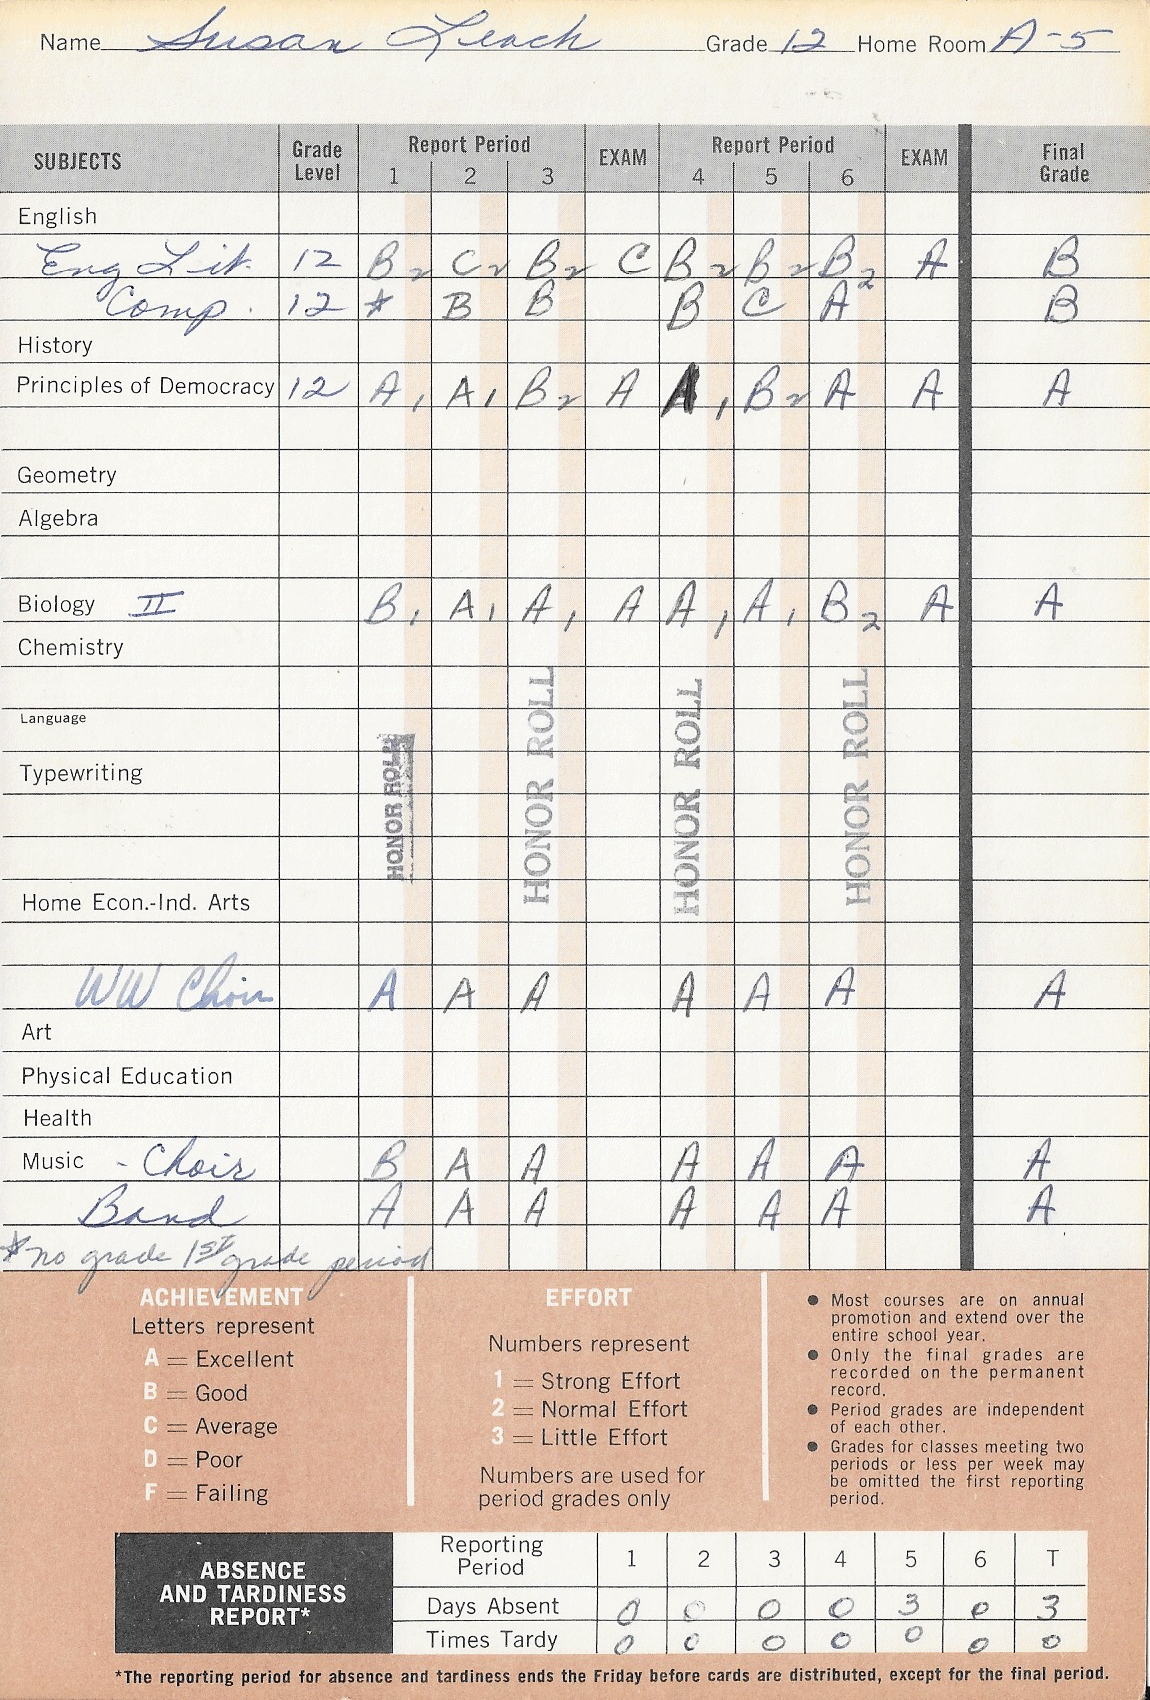 Name Susan Leach Grade 12 Home Room A-5
SUBJECTS Grade Level Report Period 1 2 3 EXAM Report Period 4 5 6 EXAM Final Grade
English
Eng Lit. 12 B2 C2 B2 C B2 B2 B2 A B
Comp. 12 * B B B C A B
History
Principles of Democracy 12 A1 A1 B2 A A1 B2 A A A
Geometry
Algebra
Biology II B1 A1 A1 A A1 A1 B2 A A
Chemistry
Language
Typewriting
HONOR ROLL HONOR ROLL HONOR ROLL HONOR ROLL
Home Econ.-Ind. Arts
WW Choir A A A A A A A
Art
Physical Education
Health
Music - Choir B A A A A A A
Band A A A A A A A
*no grade 1st grade period
ACHIEVEMENT
Letters represent
A = Excellent
B = Good
C = Average
D = Poor
F = Failing
EFFORT
Numbers represent
1 = Strong Effort
2 = Normal Effort
3 = Little Effort
Numbers are used for
period grades only
● Most courses are on annual
promotion and extend over the
entire school year.
● Only the final grades are
recorded on the permanent
record.
● Period grades are independent
of each other.
● Grades for classes meeting two
periods or less per week may
be omitted the first reporting
period.
ABSENCE
AND TARDINESS
REPORT*
Reporting Period 1 2 3 4 5 6 T
Days Absent 0 0 0 0 3 0 3
Times Tardy 0 0 0 0 0 0 0
*The reporting period for absence and tardiness ends the Friday before cards are distributed, except for the final period.